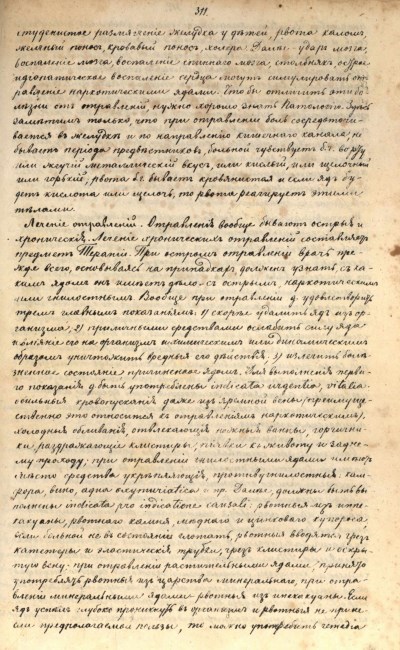 311.
студенистое размягченіе желудка у дѣтей, рвота каломъ,
желчный поносъ, кровавый поносъ, холера. Далѣе - ударъ мозга,
воспаленіе мозга, воспаленіе спиннаго мозга, столбнякъ, острое
идіопатическое воспаленіе сердца могутъ симулировать от-
равленіе наркотическими ядами. Чтобы отличить эти бо-
лѣзни отъ отравленій, нужно хорошо знать Патологію. Здѣсь
замѣтимъ только, что при отравленіи боль сосредоточи-
вается въ желудкѣ и по направленію кишечнаго канала, не
бываетъ періода предвѣстниковъ, больной чувствуетъ во рту
или жгучій металлическій вкусъ, или кислый, или щелочной
или горькій, рвота бываетъ кровянистая и если ядъ бу-
детъ кислота или щелочь, то рвота реагируетъ этими
тѣлами.
Леченіе отравленій. Отравленія вообще бываютъ острыя и
хроническія. Леченіе хроническихъ отравленій составляетъ
предметъ Терапіи. При остромъ отравленіи врачъ пре-
жде всего, основываясь на припадкахъ, долженъ узнать, съ ка-
кимъ ядомъ онъ имѣетъ дѣло - съ острымъ, наркотическимъ
или гнилостнымъ. Вообще при отравленіи д. удовлетворить
тремъ главнымъ показаніямъ: 1) скорѣе удалить ядъ изъ ор-
ганизма, 2) приличными средствами ослабить силу яда
и вліяніе его на организмъ и химическимъ или динамическимъ
образомъ уничтожить вредныя его дѣйствія, 3) излечить болѣ-
зненное состояніе причиненное ядомъ. Для выполненія перва-
го показанія д. быть употреблены indicata urgentia, vitalia -
обильныя кровопусканія даже изъ яремной вены (преимуще-
ственно это относится къ отравленіямъ наркотическимъ),
холодныя обливанія, отвлекающія ножныя ванны, горчични-
ки, раздражающіе клистиры, піявки къ животу и задне-
му проходу; при отравленіи гнилостными ядами имѣютъ
мѣсто средства укрѣпляющія, противугнилостныя: кам-
фора, вино, и пр. Далѣе, должны быть вы-
полнены indicata pro indicatione causali: рвотныя изъ ипе-
какуаны, рвотнаго камня, мѣднаго и цинковаго купороса,
если больной не въ состояніи глотать, рвотныя вводятъ чрезъ
катетеры и эластическія трубки, чрезъ клистиры и вскры-
тую вену. при отравленіи растительными ядами принято
употреблять рвотныя изъ царства минеральнаго, при отра-
вленіи минеральными ядами рвотныя изъ ипекакуаны. Если
ядъ успѣлъ глубоко проникнуть въ организмъ и рвотныя не прине-
сли предполагаемой пользы, то можно употребить